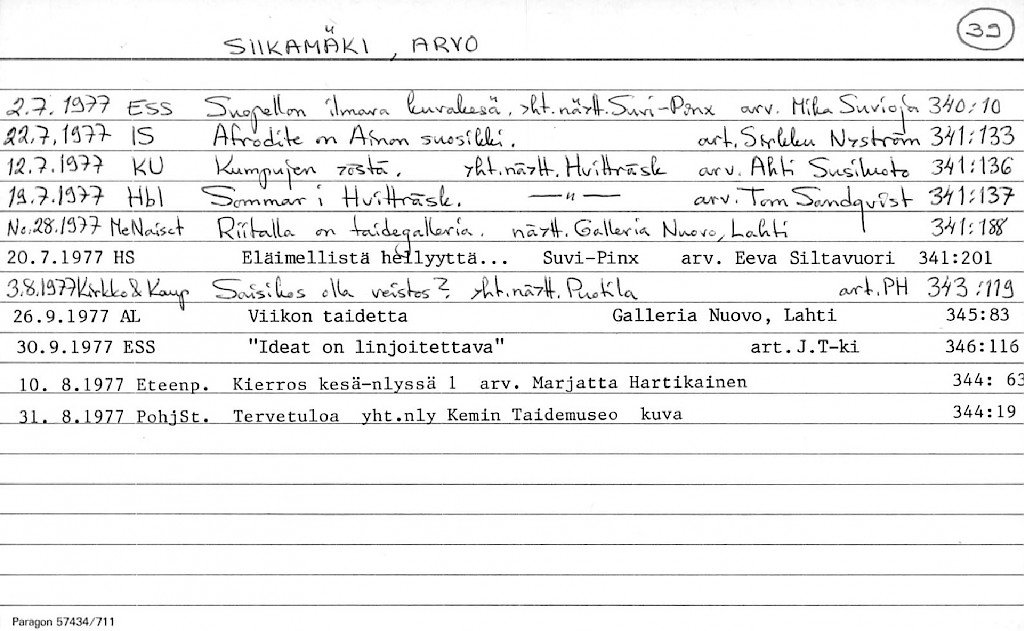 39
SIIKAMÄKI, ARVO
2.7.1977 ESS Suopellon ilmava kuvakesä. yht.näytt. Suvi-Pinx arv. Mika Suvioja 340:10
22.7.1977 IS Afrodite on Ainon suosikki. art. Sirkku Nyström 341:133
12.7.1977 KU Kumpujen yöstä. yht.näytt. Hvitträsk arv. Ahti Susiluoto 341:136
19.7.1977 Hbl Sommar i Hvitträsk. —"— arv. Tom Sandqvist 341:137
No.28.1977 MeNaiset Riitalla on taidegalleria. näytt. Galleria Nuovo, Lahti 341:188
20.7.1977 HS Eläimellistä hellyyttä... Suvi-Pinx arv. Eeva Siltavuori 341:201
3.8.1977 Kirkko & Kaup Saisikos olla veistos? yht.näytt. Puotila art. PH 343:119
26.9.1977 AL Viikon taidetta Galleria Nuovo, Lahti 345:83
30.9.1977 ESS "Ideat on linjoitettava" art.J.T-ki 346:116
10. 8.1977 Eteenp. Kierros kesä-nlyssä l arv. Marjatta Hartikainen 344: 63
31. 8.1977 PohjSt. Tervetuloa yht.nly Kemin Taidemuseo kuva 344:19
Paragon 57434/711